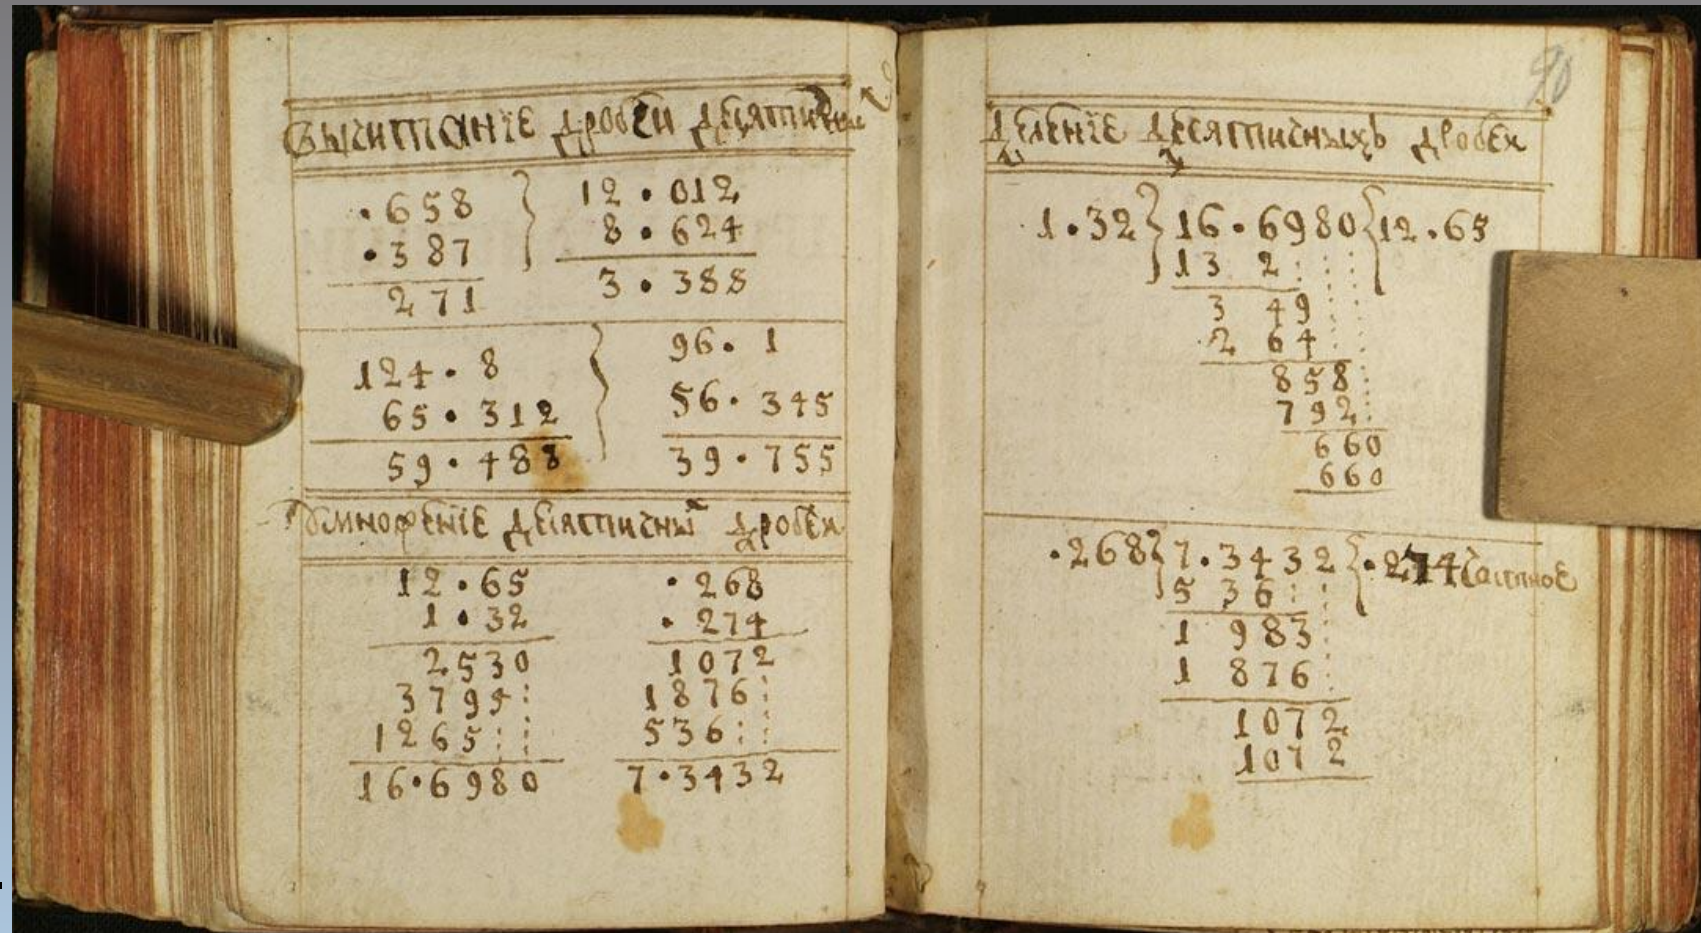 вычитанїе дробеи десятичны
.658
.387
271
12.012
8.624
3.388
124.8
65.312
59.488
96.1
56.345
39.755
Умноженїе десятичны дробеи
12.65
1.32
2530
3795:
1265::
16.6980
.268
.274
1072
1876:
536::
7.3432
90
Деленїе десятичныхъ дробеи
1.32}16.6980{12.65
13 2:::
3 49::
2 64::
858:
792:
660
660
.268}7.3432{.274 частное
5 36::
1 983:
1 876:
1072
1072